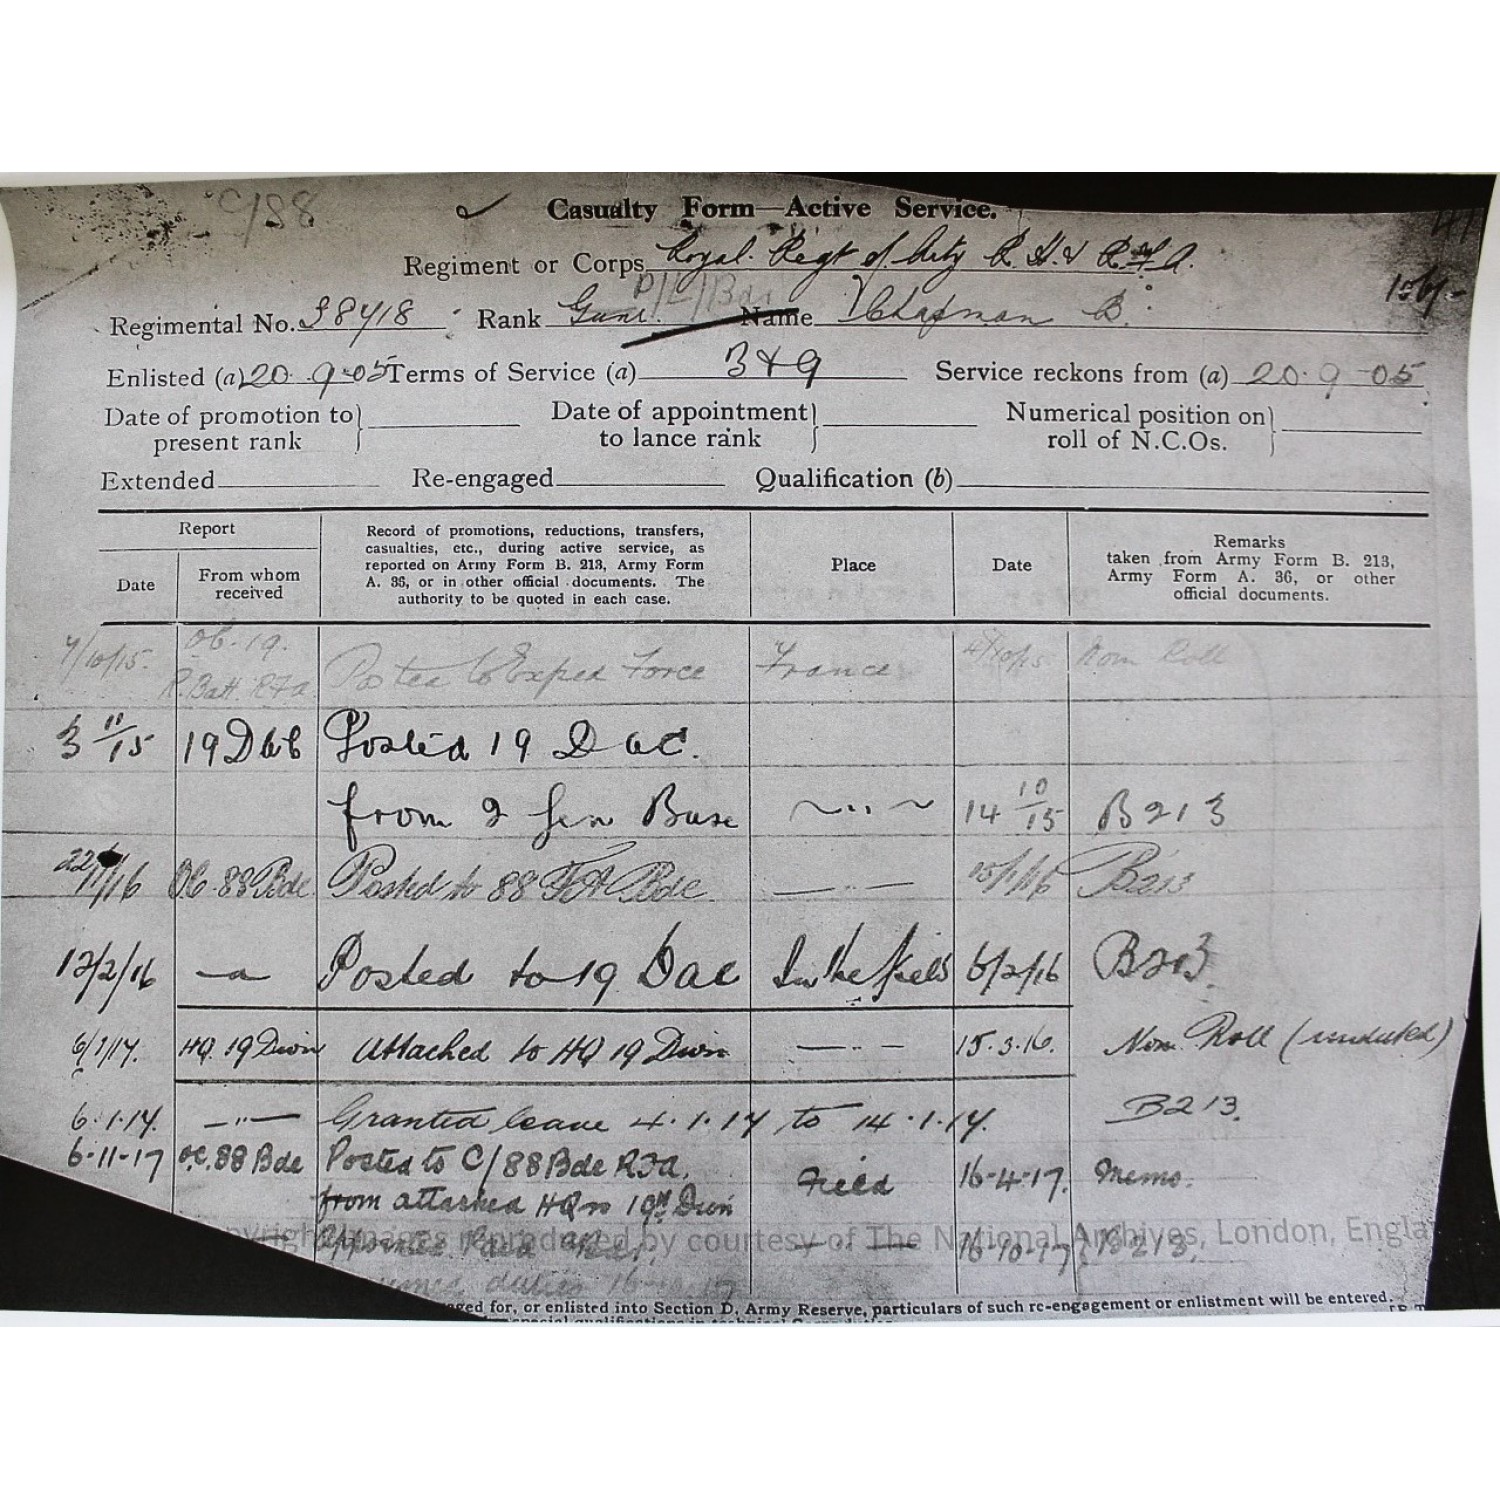 C/88
Casualty Form—Active Service.
Regiment or Corps Royal Regt of Arty R.H. & R.F.A.
Regimental No. 38418 Rank Gunr. Name Chapman B.
Enlisted (a) 20.9.05 Terms of Service (a) 3 & 9 Service reckons from (a) 20.9.05
Date of promotion to present rank Date of appointment to lance rank Numerical position on roll of N.C.Os.
Extended Re-engaged Qualification (b)
Report
Date From whom received Record of promotions, reductions, transfers, casualties, etc., during active service, as reported on Army Form B. 213, Army Form A. 36, or in other official documents. The authority to be quoted in each case. Place Date Remarks taken from Army Form B. 213, Army Form A. 36, or other official documents.
7/10/15. OC. 19. R. Batt. RFA Posted to Exped Force France Nom Roll
3 11/15 19 DAC Posted 19 DAC.
from 2 Gen Base 14 10/15 B213
22/1/16 OC. 88 Bde. Posted to 88 FA Bde. — " — 15/1/16 B213
12/2/16 Posted to 19 DAC In the field 6/2/16 B213.
6/1/17. HQ. 19 Divn Attached to HQ 19 Divn — " — 15.3.16. Nom. Roll (undated)
6.1.17. — " — Granted leave 4.1.17 to 14.1.17. B213.
6-11-17 OC. 88 Bde Posted to C/88 Bde RFA. Field 16-4-17. Memo.
from attached HQrs 19th Divn
Copyright images reproduced by courtesy of The National Archives, London, Engla
Appointed Paid Bdr. — " — 16-10-17 B213.
duties 16
ged for, or enlisted into Section D, Army Reserve, particulars of such re-engagement or enlistment will be entered.